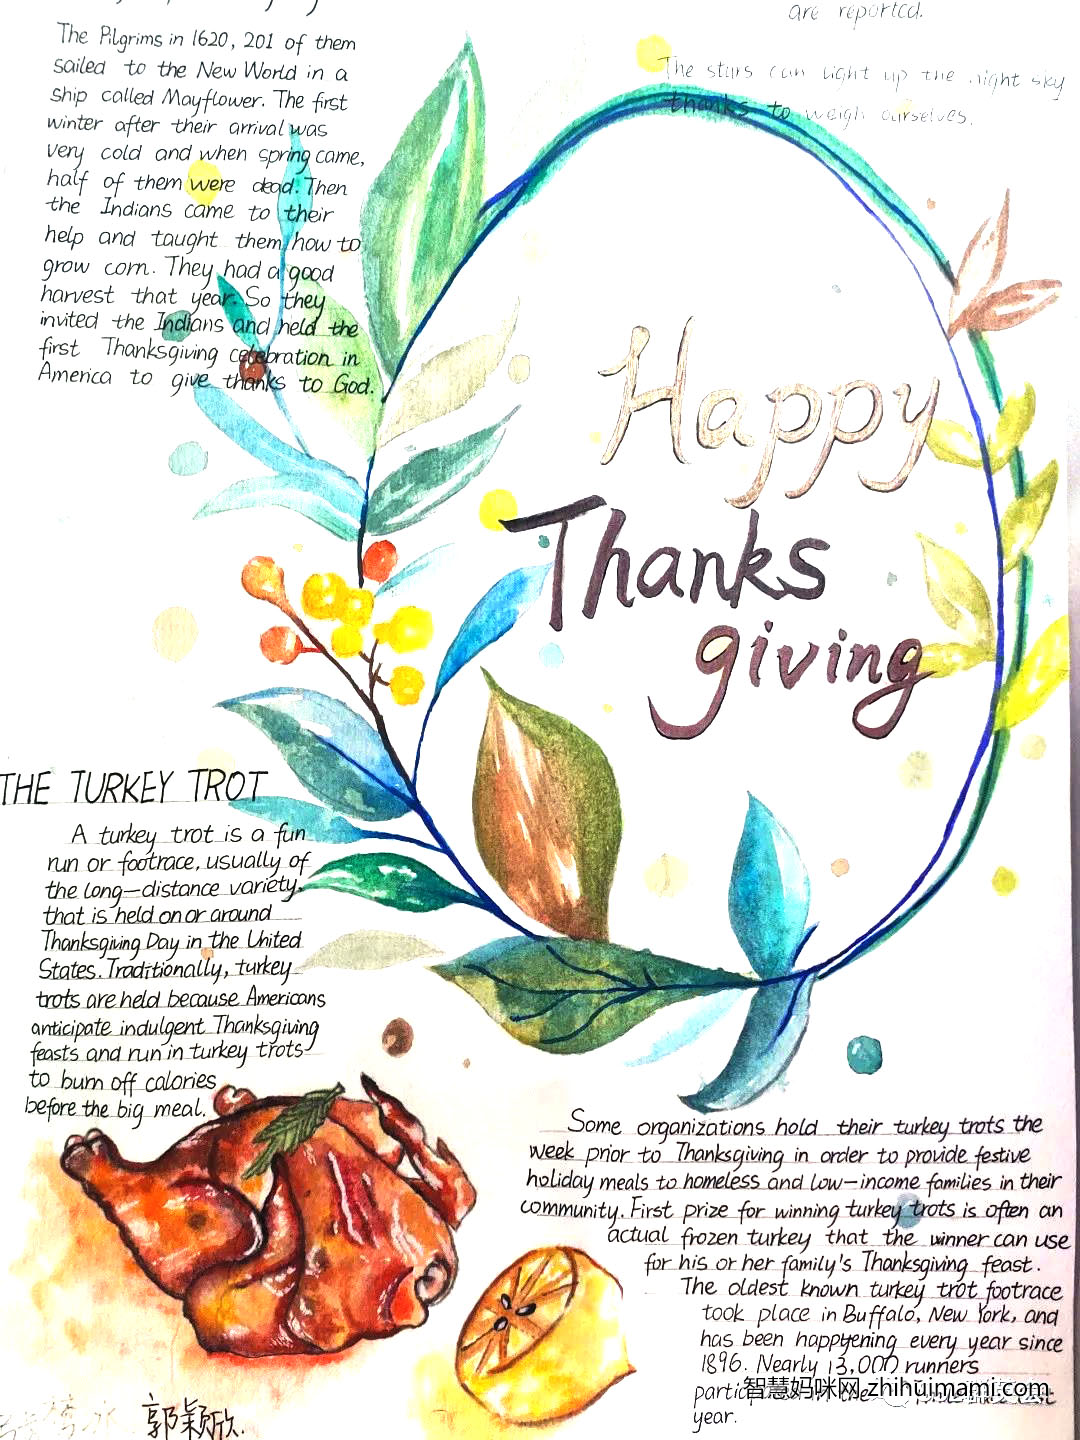 are reported.
The stars can light up the night sky
thanks to weigh ourselves.
The Pilgrims in 1620, 201 of them
sailed to the New World in a
ship called Mayflower. The first
winter after their arrival was
very cold and when spring came,
half of them were dead. Then
the Indians came to their
help and taught them how to
grow corn. They had a good
harvest that year. So they
invited the Indians and held the
first Thanksgiving celebration in
America to give thanks to God.
Happy
Thanks
giving
THE TURKEY TROT
A turkey trot is a fun
run or footrace, usually of
the long-distance variety,
that is held on or around
Thanksgiving Day in the United
States. Traditionally, turkey
trots are held because Americans
anticipate indulgent Thanksgiving
feasts and run in turkey trots
to burn off calories
before the big meal.
Some organizations hold their turkey trots the
week prior to Thanksgiving in order to provide festive
holiday meals to homeless and low-income families in their
community. First prize for winning turkey trots is often an
actual frozen turkey that the winner can use
for his or her family's Thanksgiving feast.
The oldest known turkey trot footrace
took place in Buffalo, New York, and
has been happyening every year since
1896. Nearly 13,000 runners
the
year.
郭颖欣.
智慧妈咪网 zhihuimami.com